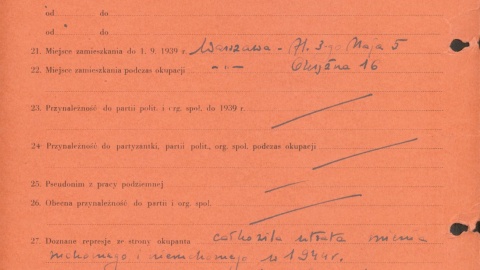 od do
od do
21. Miejsce zamieszkania do 1. 9. 1939 r. Warszawa - Al. 3-go Maja 5
22. Miejsce zamieszkania podczas okupacji -"- Okężna 16
23. Przynależność do partii polit. i org. spol. do 1939 r.
24. Przynależność do partyzantki, partii polit., org. spol. podczas okupacji
25. Pseudonim z pracy podziemnej
26. Obecna przynależność do partii i org. spol.
27. Doznane represje ze strony okupanta całkowita utrata mienia
ruchomego i nieruchomego w 1944 r.